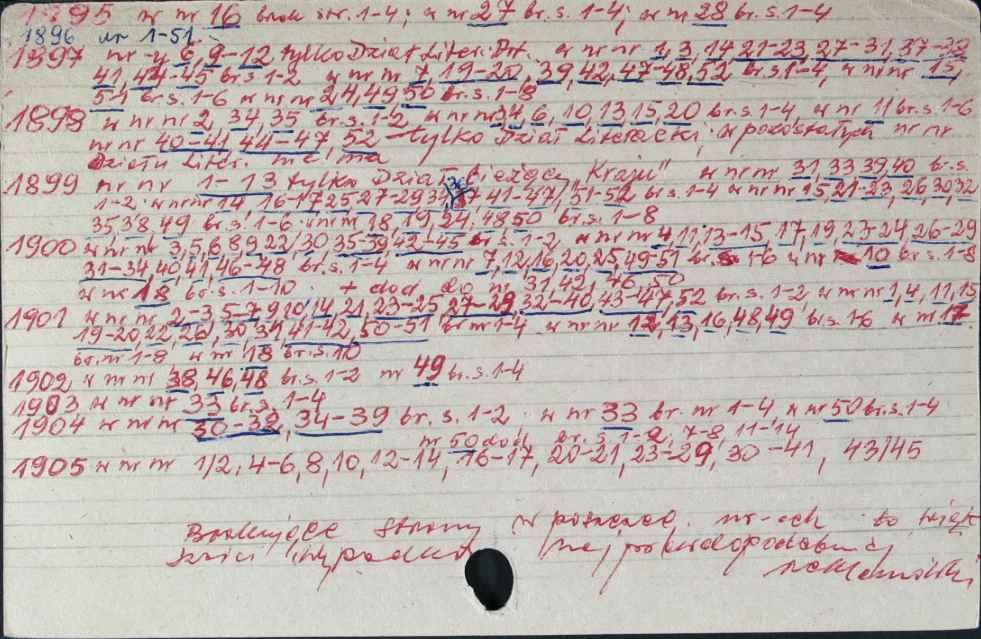 1895 w nr 16 brak str. 1-4; w nr 27 br. s. 1-4; w nr 28 br. s. 1-4
1896 nr 1-51
1897 nr-y 6, 9-12 tylko Dział Liter. Art. w nr nr 2, 3, 14, 21-23, 27-31, 37-38
41, 44-45 br. s 1-2 w nr nr 7, 19-20, 39, 42, 47-48, 52 br. s. 1-4, w nr nr 15,
51 br. s. 1-6 w nr nr 24, 49, 50 br. s. 1-8
1898 w nr nr 2, 34, 35 br. s. 1-2 w nr nr 6, 10, 13, 15, 20 br. s. 1-4, w nr 11 br. s. 1-6
nr nr 40-41, 44-47, 52 - tylko Dział Literacki, w pozostałych nr nr
Działu Liter. nie ma
1899 nr nr 1-13 tylko Dział bieżący "Kraju" w nr nr 31, 33, 39, 40 br. s.
1-2 w nr nr 14, 16-17, 25, 27-29, 34, 37, 41-47, 51-52 br. s. 1-4 w nr nr 15, 21-23, 26, 30, 32
35, 38, 49 br. s. 1-6 w nr nr 18, 19, 24, 48, 50 br. s. 1-8
1900 w nr nr 3, 5, 6, 8, 9, 22, 30, 35-39, 42-45 br. s. 1-2, w nr nr 4, 11, 13-15, 17, 19, 23-24, 26-29
31-34, 40, 41, 46-48 br. s. 1-4 w nr nr 7, 12, 16, 20, 25, 49-51 br. s 1-6 w nr 10 br. s. 1-8
w nr 18 br. s. 1-10. + dod. do nr 31, 42, 46, 50
1901 w nr nr 2-3, 5-7, 9, 10, 14, 21, 23-25, 27-29, 32-40, 43-47, 52 br. s. 1-2 w nr nr 1, 4, 11, 15
19-20, 22, 26, 30, 31, 41-42, 50-51 br nr 1-4 w nr nr 12, 13, 16, 48, 49 br. s 1-6 w nr 17
br. nr 1-8 w nr 18 br. s. 10
1902 w nr nr 38, 46, 48 br. s. 1-2 nr 49 br. s. 1-4
1903 w nr nr 33 br. s. 1-4
1904 w nr nr 30-32, 34-39 br. s. 1-2 w nr 33 br. nr 1-4, w nr 50 br. s. 1-4
nr 50 dod. br. s. 1-2, 7-8, 11-14
1905 w nr nr 1/2, 4-6, 8, 10, 12-14, 16-17, 20-21, 23-29, 30-41, 43/45
Brakujące strony w poszczeg. nr-ach to więk
szości wypadków najprawdopodobniej